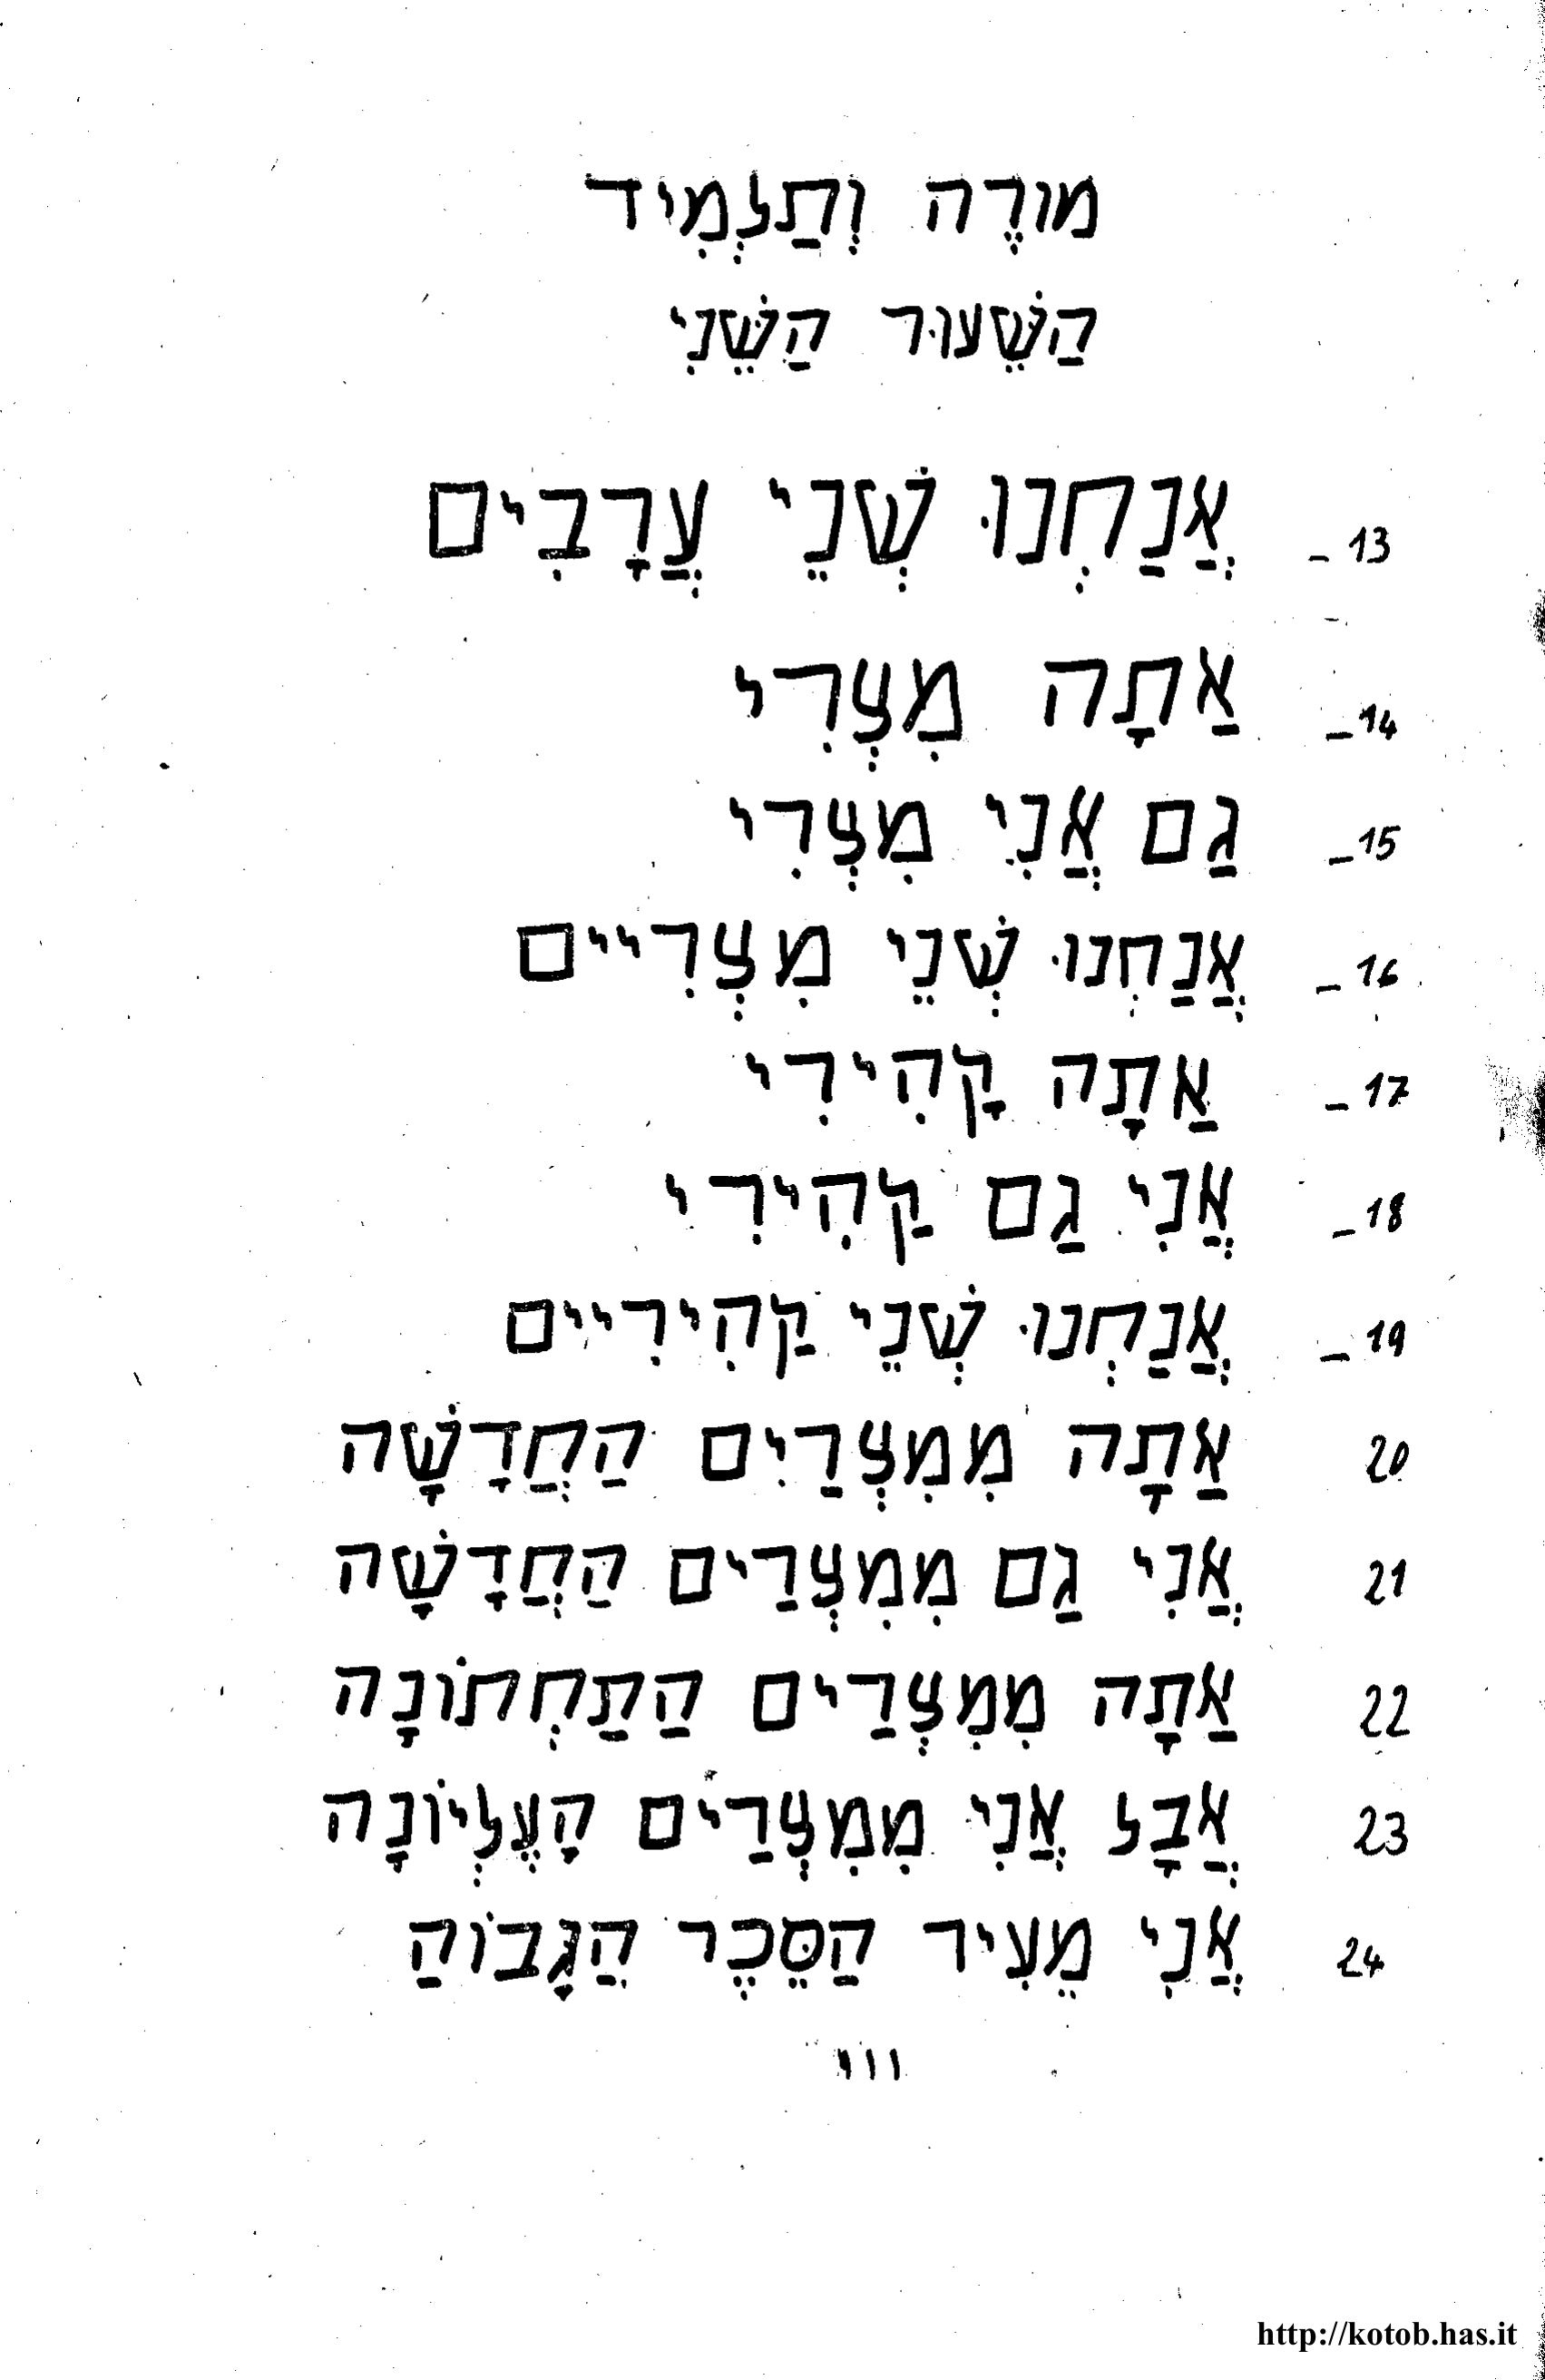 מוֹרֶה וְתַלְמִיד
הַשֵּׁעוּר הַשֵּׁנִי
13 – אֲנַחְנוּ שְׁנֵי עֲרָבִים
14 – אַתָה מִצְרִי
15 – גַם אֲנִי מִצְרִי
16 – אֲנַחְנוּ שְׁנֵי מִצְרִיים
17 – אַתָה קָהִירִי
18 – אֲנִי גַם קַהִירִי
19 – אֲנַחְנוּ שְׁנֵי קַהִירִיים
20 אַתָה מִמִצְרַיִם הַחֲדָשָׁה
21 אֲנִי גַם מִמִצְרַים הַחֲדָשָׁה
22 אַתָה מִמִצְרַים הַתַחְתוֹנָה
23 אֲבָל אֲנִי מִמִצְרַים הָעֶלְיוֹנָה
24 אֲנִי מֵעִיר הַסֵּכֶר הַגָּבוֹהַ
ווו
http://kotob.has.it